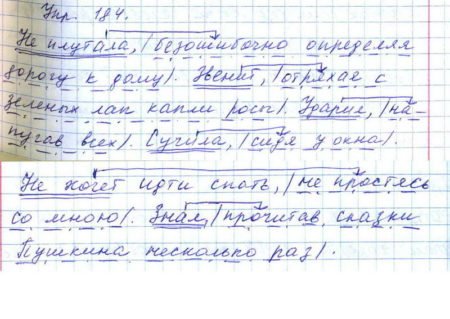 Упр. 184.
Не плутала, | безошибочно определяя
дорогу к дому |. Звенит, | отряхая с
зеленых лап капли росы |. Ударил, | на-
пугав всех |. Сучила, | сидя у окна |.
Не хочет идти спать, | не простясь
со мною |. Знал, | прочитав сказки
Пушкина несколько раз |.